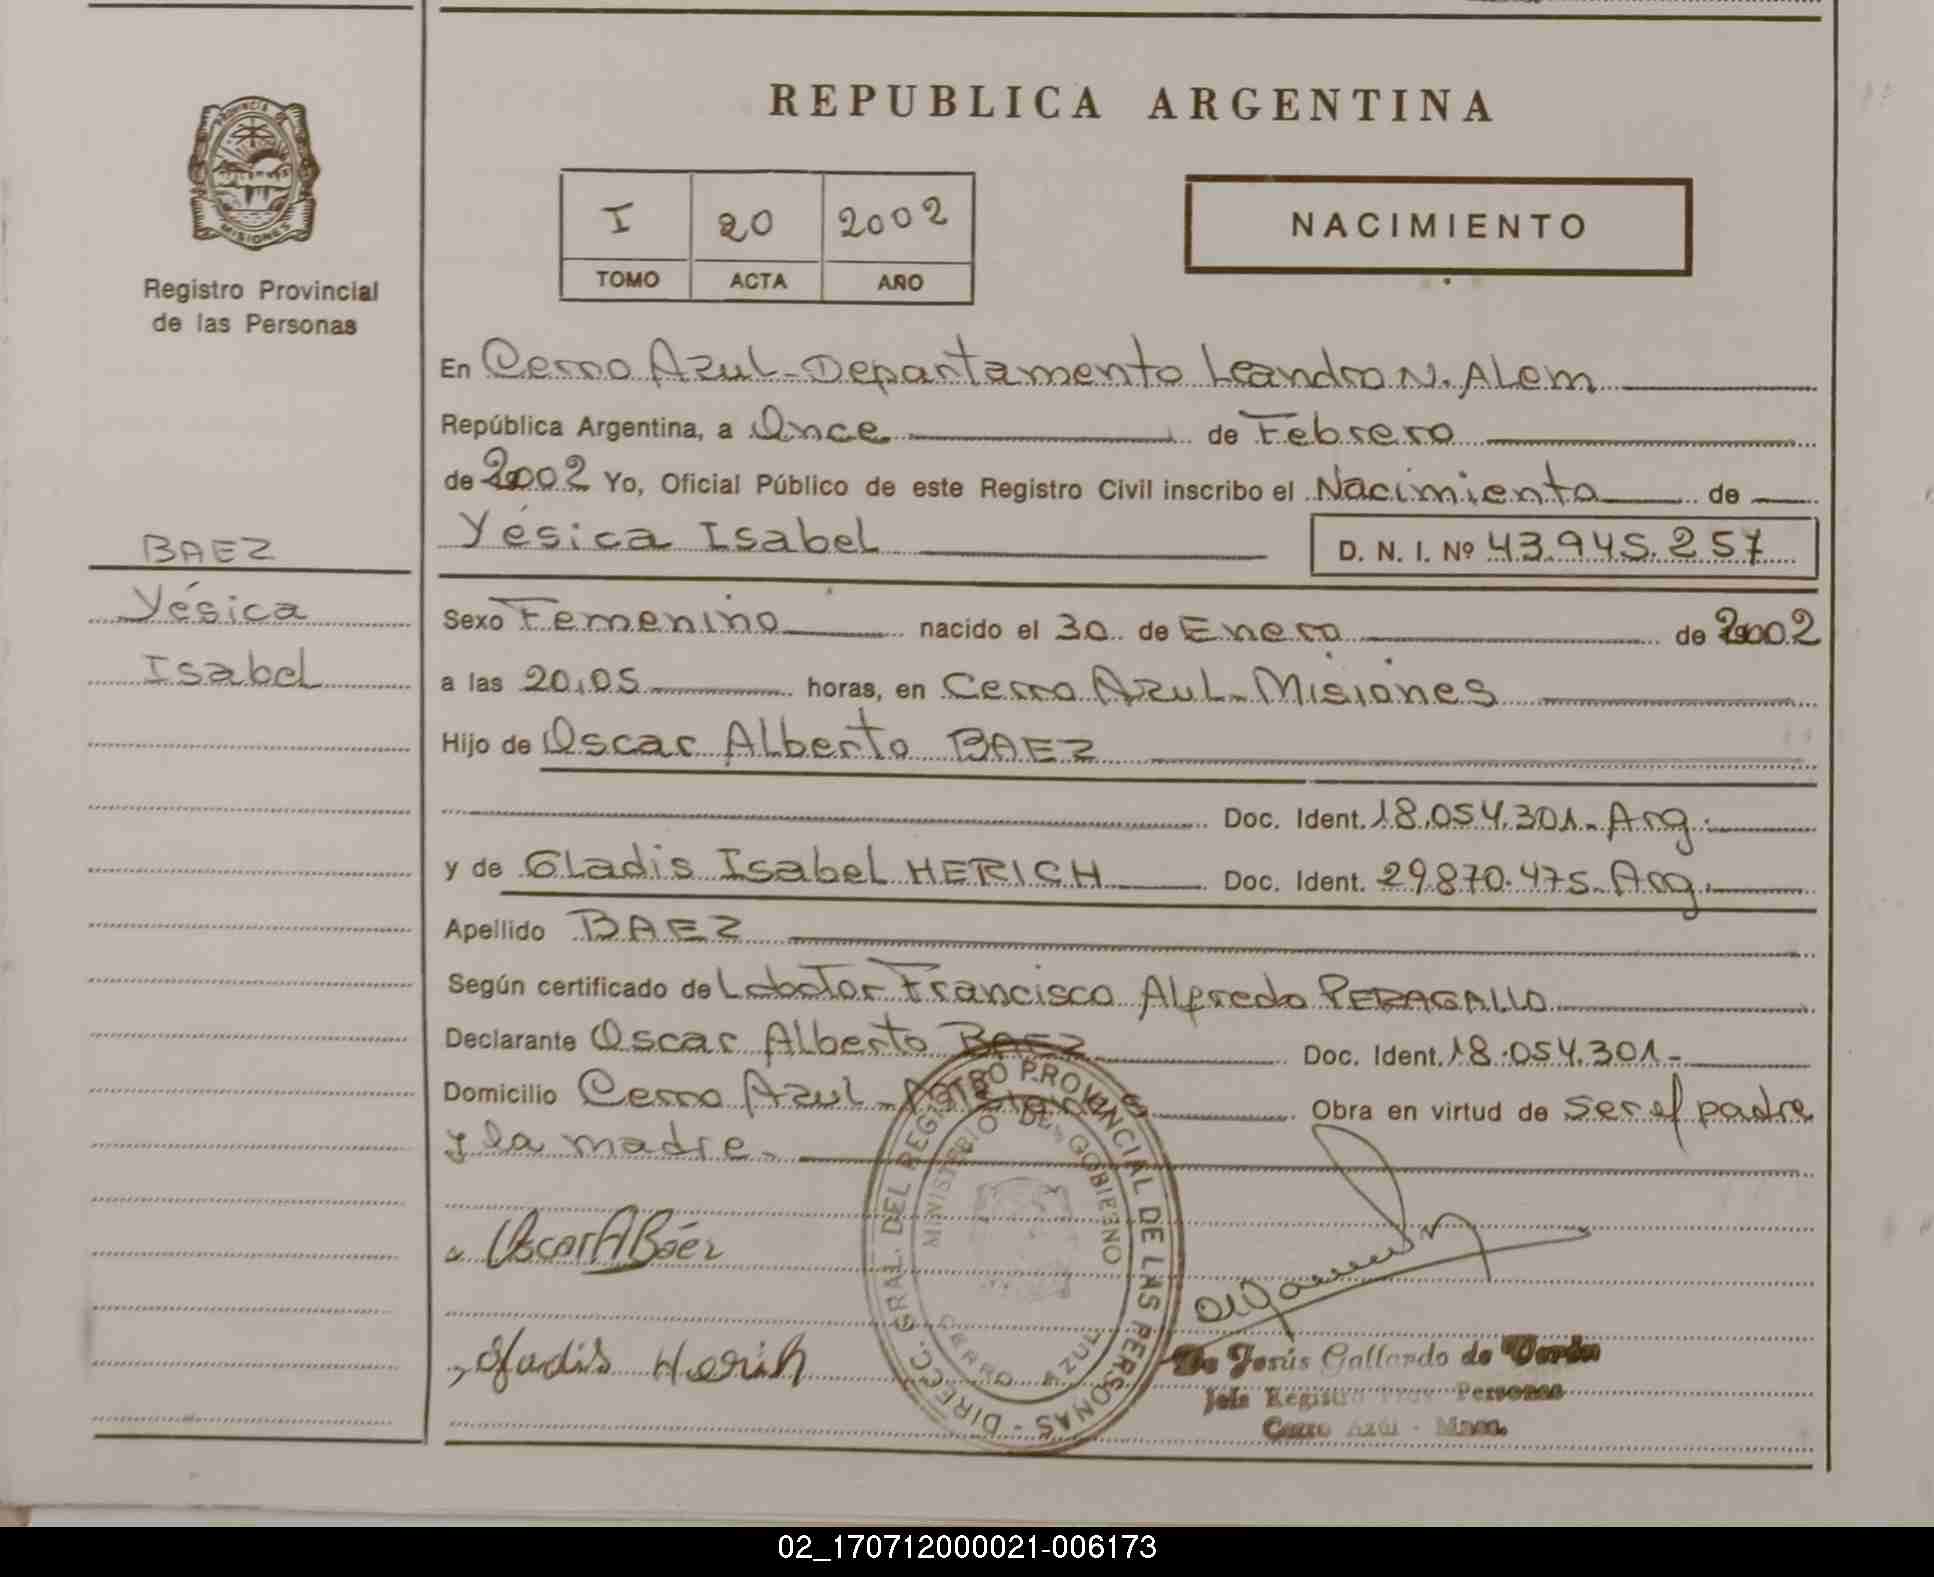 REPUBLICA ARGENTINA
PROVINCIA DE
MISIONES
Registro Provincial
de las Personas
I 20 2002
TOMO ACTA AÑO
NACIMIENTO
En Cerro Azul - Departamento Leandro N. Alem
República Argentina, a Once de Febrero
de 2002 Yo, Oficial Público de este Registro Civil inscribo el Nacimiento de
Yésica Isabel
D. N. I. Nº 43.945.257
BAEZ
Yésica
Isabel
Sexo Femenino nacido el 30 de Enero de 2002
a las 20,05 horas, en Cerro Azul - Misiones
Hijo de Oscar Alberto BAEZ
Doc. Ident. 18.054.301 - Arg.
y de Gladis Isabel HERICH Doc. Ident. 29.870.475 - Arg.
Apellido BAEZ
Según certificado de Francisco Alfredo PERAGALLO
Declarante Oscar Alberto BAEZ Doc. Ident. 18.054.301 -
Domicilio Cerro Azul - Misiones Obra en virtud de ser el padre
y la madre.
Oscar A Báez
Gladis Herich
DIREC. GRAL. DEL REGISTRO PROVINCIAL DE LAS PERSONAS -
MINISTERIO DE GOBIERNO
CERRO AZUL
Jesús Gallardo de
Jefe Registro Prov. Personas
Cerro Azul - Mnes.
02_170712000021-006173